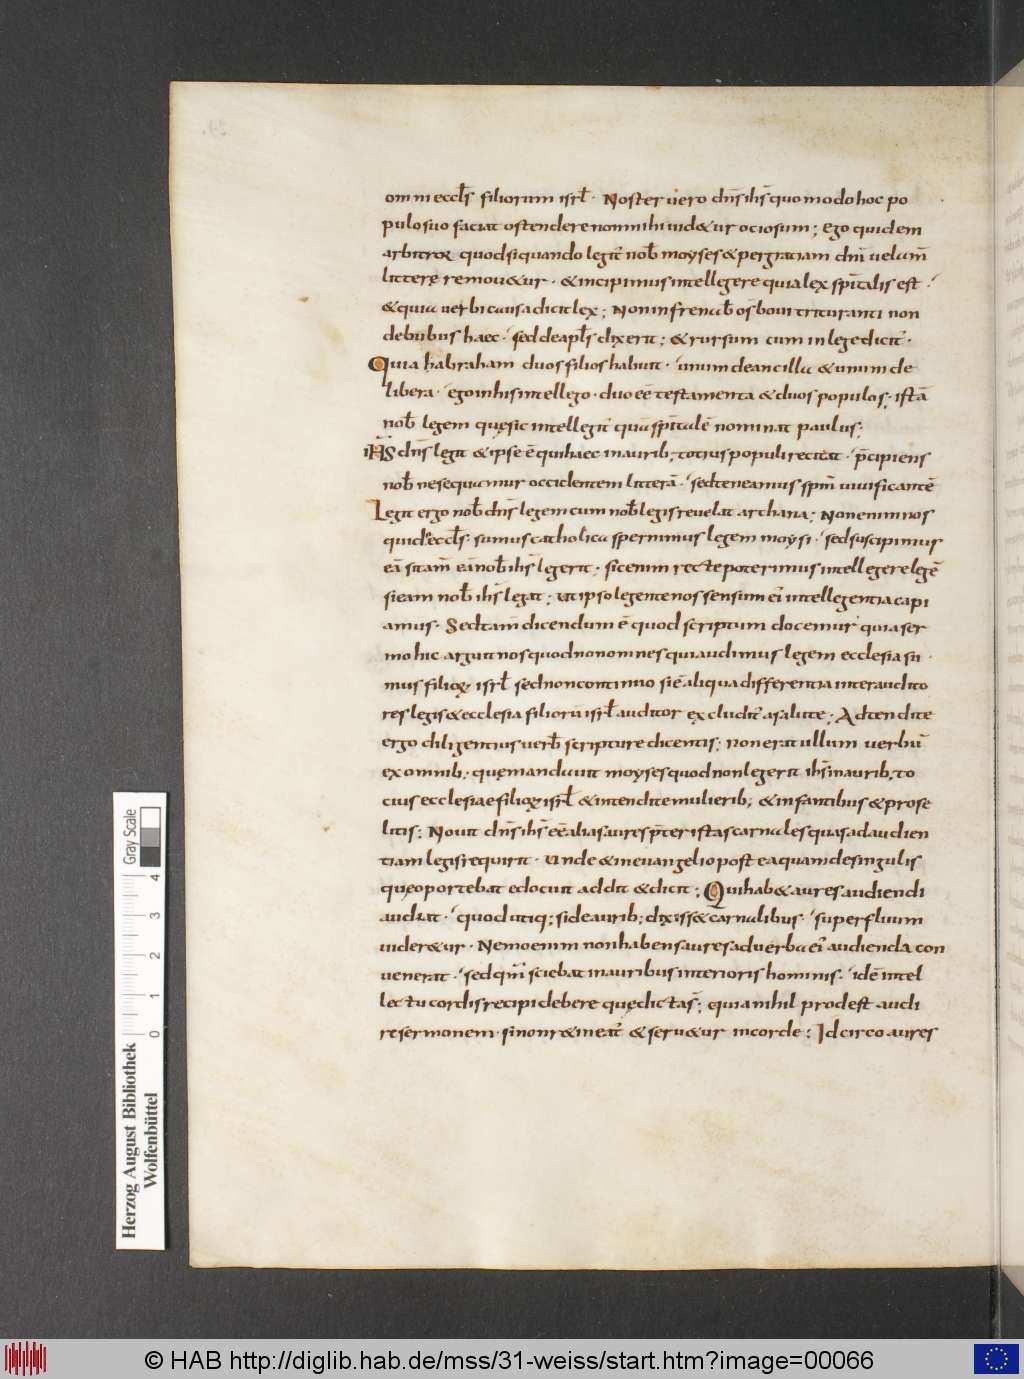 omni eccl̄s filiorum isrl̄· Noster uero dn̄s ih̄s quomodo hoc po
pulo suo faciat ostendere non mihi uid&ur ociosum; ego quidem
arbitror quod siquando legit̉ nob̄ moyses & per gratiam dn̄i uelum̄
litterę remou&ur· & incipimus intellegere quia lex sp̄italis est·
& quia uerbi causa dicit lex; Non infrenab̄ os boui trituranti non
de bubus haec· sed de apl̄s dixerit; & rursum cum in lege dicit̉·
Quia habraham duos filios habuit· unum de ancilla & unum de
libera· ego in his intellego· duo eē testamenta & duos populos; istā
nob̄ legem quę sic intellegit̉ quā sp̄italē nominat paulus;
ih̄s dn̄s legit & ipse ē qui haec in aurib; totius populi recitat· p̄cipiens
nob̄ ne sequamur occidentem litterā· sed teneamus sp̄m uiuificantē
Legit ergo nob̄ dn̄s legem cum nob̄ legis reuelat archana; Non enim nos
qui de eccl̄s· sumus catholica spernimus legem moysi· sed suscipimus
eā si tam̄ eā nob̄ ih̄s legerit; sic enim recte poterimus intellegere legē
si eam nob̄ ih̄s legat; ut ipso legente nos sensum eỉ intellegentia capi
amus· Sed tam̄ dicendum ē quod scriptum docemur quia ser
mo hic arguit nos quod non omnes qui audimus legem ecclesia su
mus filioꝝ isrl̄ sed non continuo si ē aliqua differentia inter audito
res legis & ecclesia filiorū isrl̄ auditor excludit̉ a salute; Adtendite
ergo diligentius uerb̄ scripture dicentis; non erat ullum uerbū
ex omnib; quę mandauit moyses quod non legerit ih̄s in aurib; to
cius ecclesiae filioꝝ isrl̄ & intendite mulierib; & infantibus & prose
litis; Nouit dn̄s ih̄s eē alias aures p̄ter istas carnales quas ad audien
tiam legis requirit· Unde & in euangelio post ea quam de singulis
quę oportebat edocuit addit & dicit; Qui hab& aures audiendi
audiat· quod utiq; si de aurib; dixiss& carnalibus· superfluum
uider&ur· Nemo enim non habens aures ad uerba eỉ audienda con
uenerat· sed qm̄ sciebat in auribus interioris hominis· idē intel
lectu cordis recipi debere quę dicta s̄; quia nihil prodest audi
re sermonem· si non r&ineat̉ & seru&ur in corde; Idcirco aures
Gray Scale
0 1 2 3 4
Herzog August Bibliothek
Wolfenbüttel
© HAB http://diglib.hab.de/mss/31-weiss/start.htm?image=00066